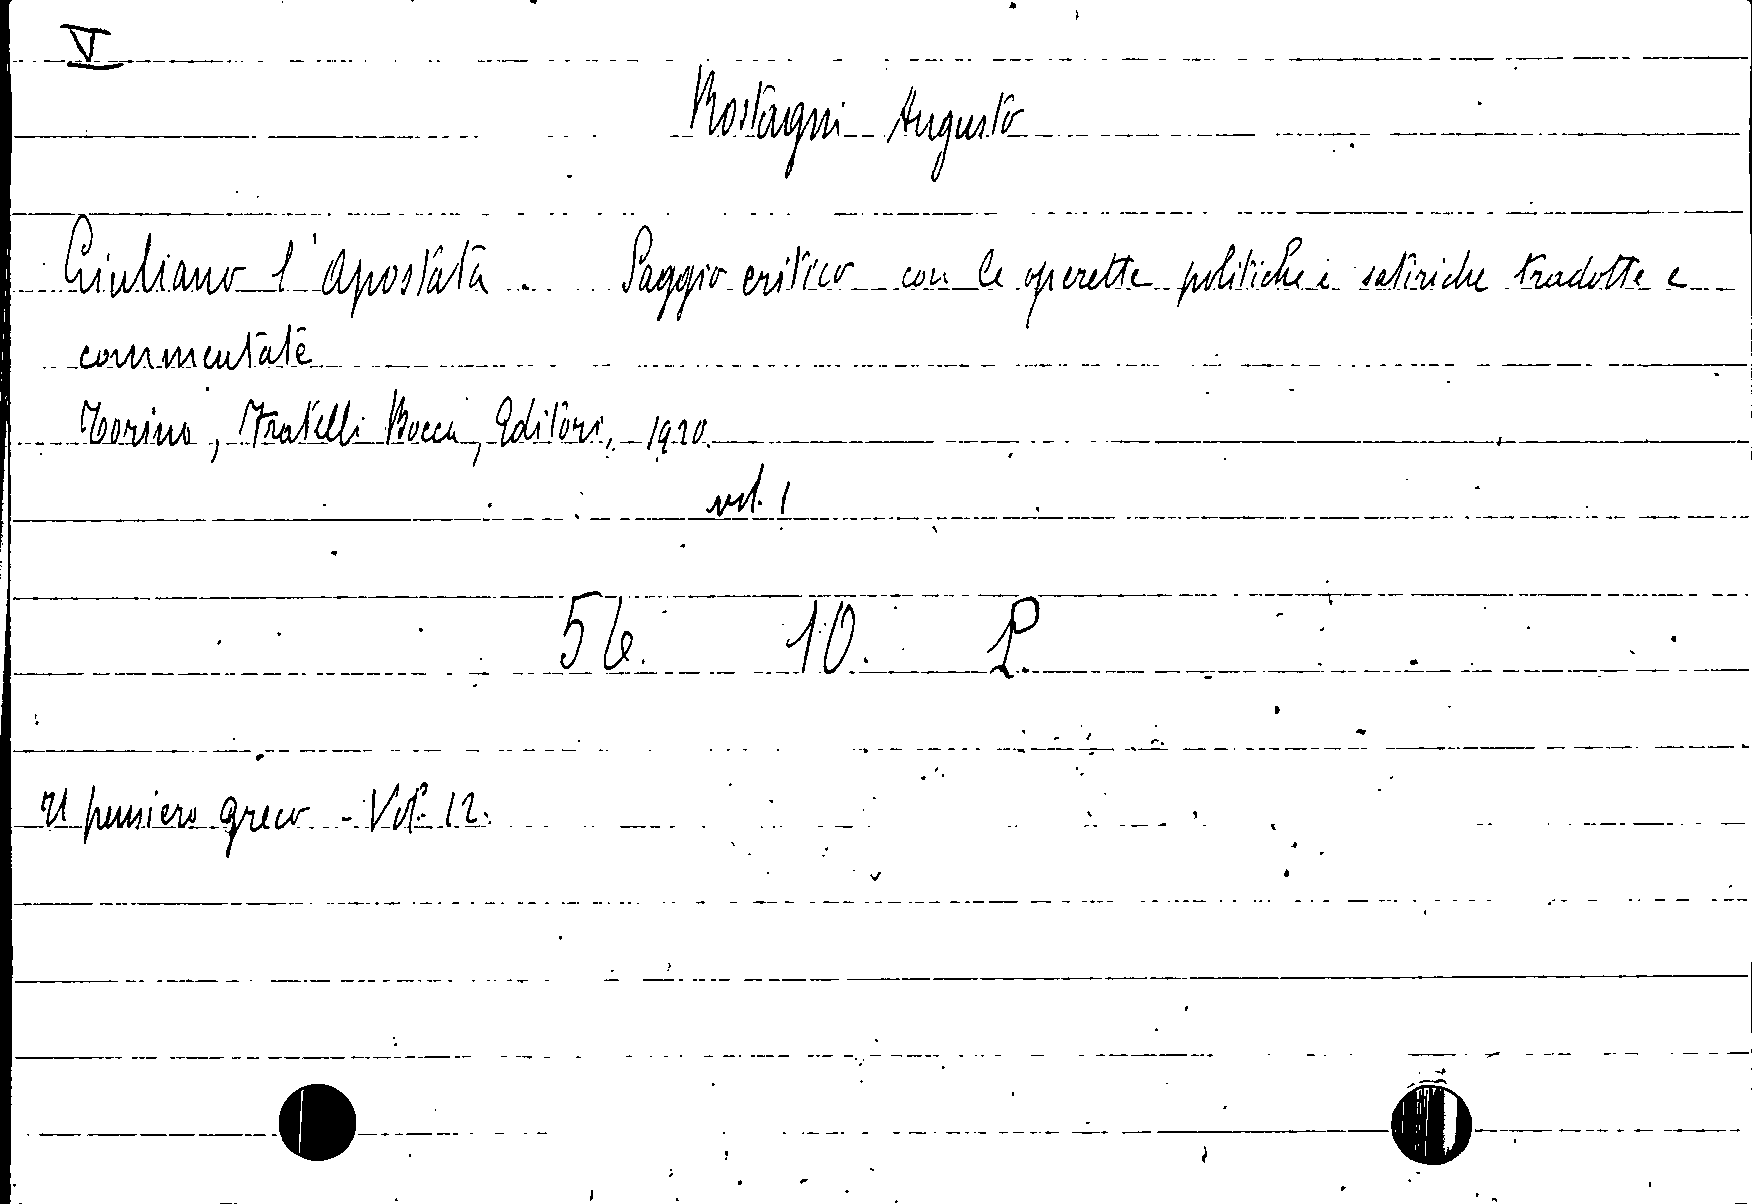 V
Rostagni Augusto
Giuliano l'Apostata. Saggio critico con le operette politiche e satiriche tradotte e
commentate
Torino, Fratelli Bocca, Editori, 1920.
vol. 1
56. 10. P.
Il pensiero greco - Vol. 12.